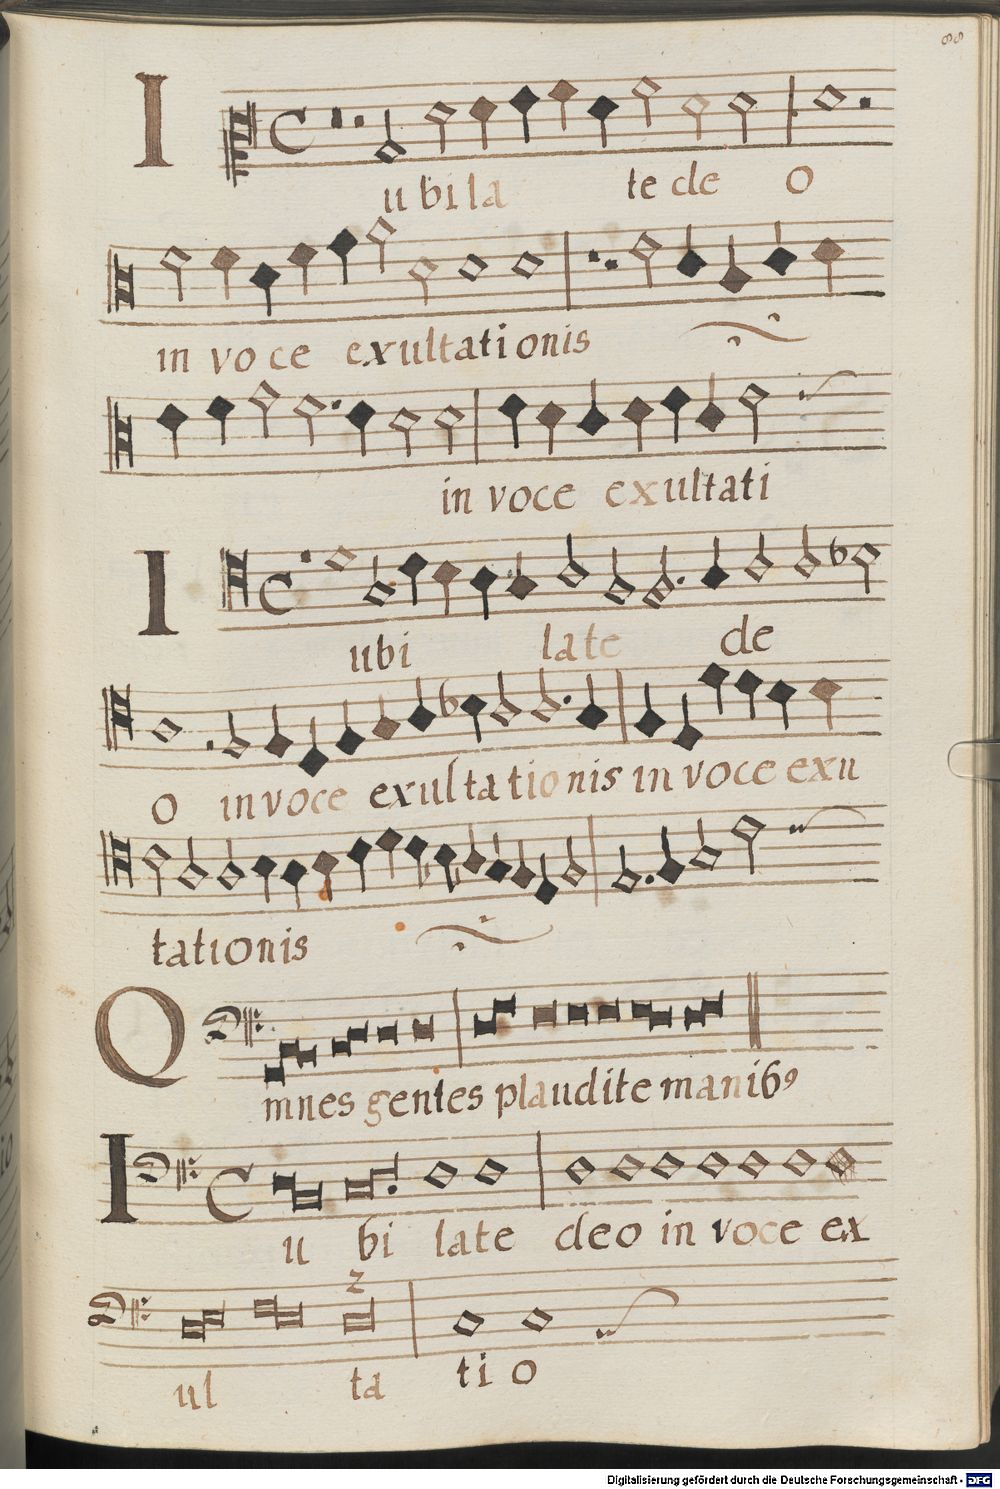 88
I
ubila te de o
in voce exultationis
in voce exultati
I
ubi late de
o in voce exultationis in voce exu
tationis
O
mnes gentes plaudite manibꝰ
I
u bi late deo in voce ex
2
ul ta ti o
Digitalisierung gefördert durch die Deutsche Forschungsgemeinschaft - DFG